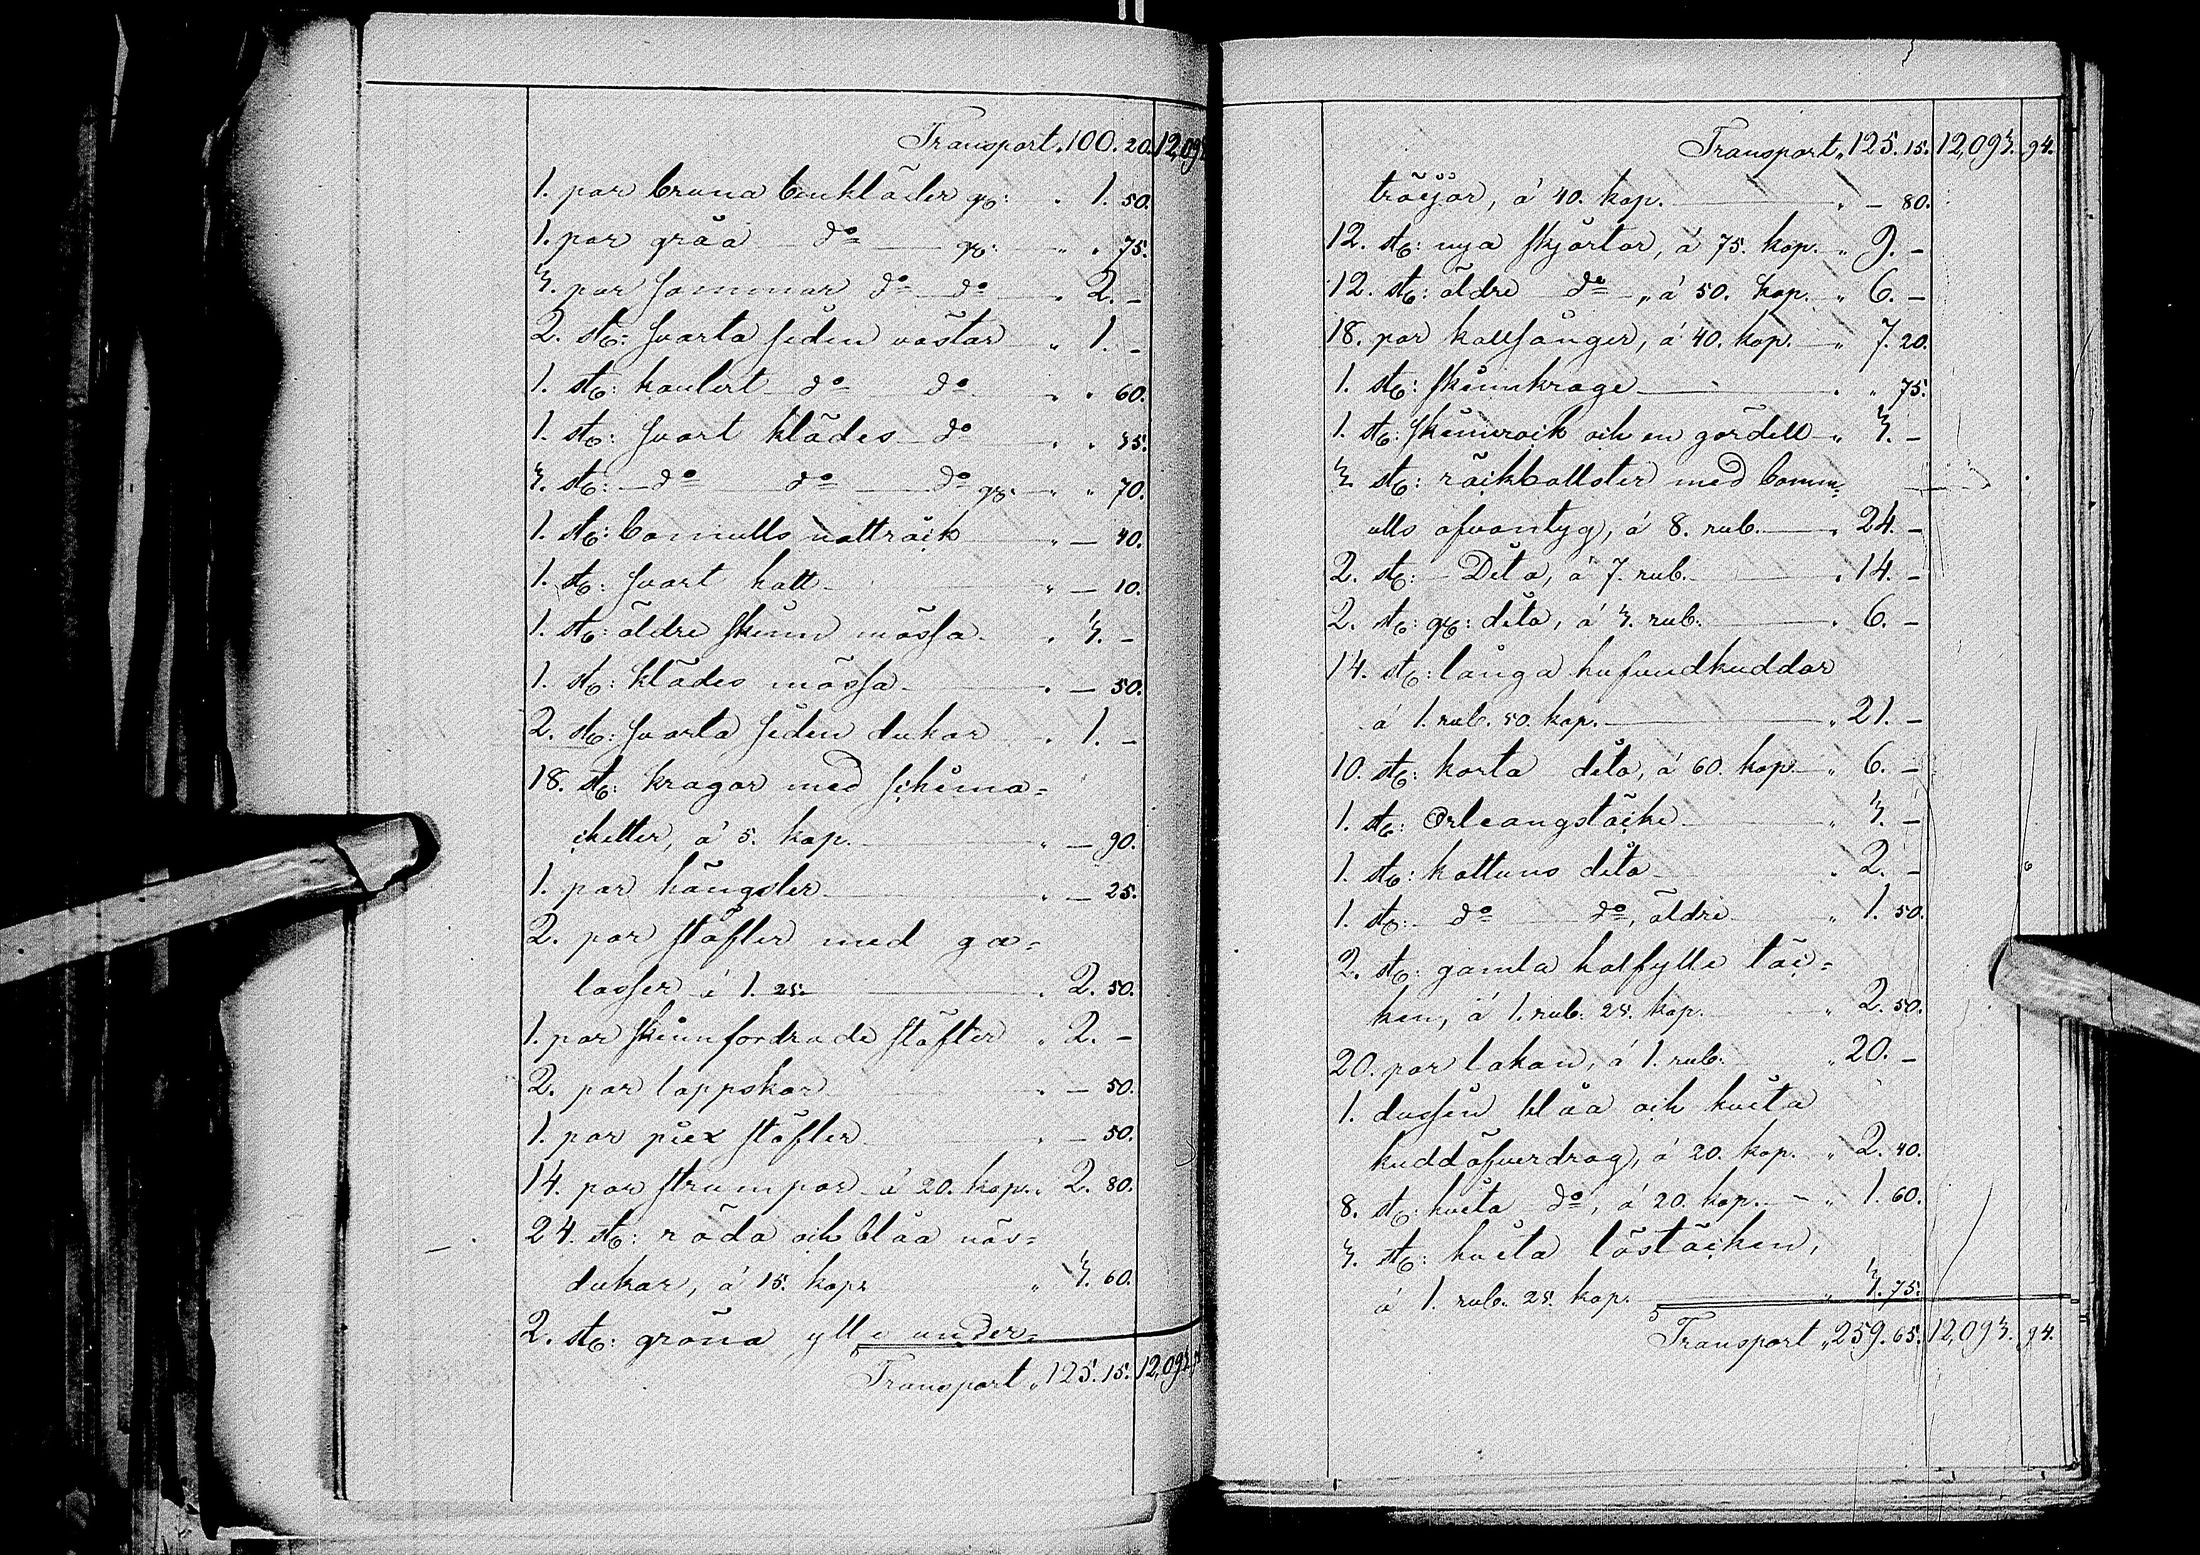 Transport „ 100. 20. 12,093
1. par bruna benkläder gl: „ 1. 50.
1. par gråa d:o gl: „ „ 75.
3. par sommar d:o d:o „ 2. –
2. st: svarta siden västar „ 1. –
1. st: kaulert d:o d:o „ „ 60.
1. st: svart klädes d:o „ „ 75.
3. st: d:o d:o d:o gl: „ „ 70.
1. st: bomulls nattrock „ – 40.
1. st: svart hatt „ – 10.
1. st: äldre skinn mössa „ 3. –
1. st: klädes mössa „ – 50.
2. st: svarta siden dukar „ 1. –
18. st: kragar med schema=
chetter, á 5. kop. „ – 90.
1. par hängsler „ – 25.
2. par stöfler med ga=
losser á 1. 25. „ 2. 50.
1. par skinnfordrade stöfler „ 2. –
2. par lappskor „ – 50.
1. par piex stöfler „ – 50.
14. par strumpor á 20. kop. „ 2. 80.
24. st: röda och blåa näs=
dukar, á 15. kop. „ 3. 60.
2. st: gröna ylle under=
Transport „ 125. 15. 12,093
Transport „ 125. 15. 12,093. 94.
tröijor, á 40. kop. „ – 80.
12. st: nya skjortor, á 75. kop. „ 9. –
12. st: äldre d:o „ á 50. kop. „ 6. –
18. par kallsånger, á 40. kop. „ 7. 20.
1. st: skinnkrage „ „ 75.
1. st: skinnrock och en gördell „ 3. –
3. st: räckbollster med bomm=
ulls ofvantyg, á 8. rub. „ 24. –
2. st: Dito, á 7. rub. „ 14. –
2. st: gl: dito, á 3. rub. „ 6. –
14. st: långa hufvudkuddar
á 1. rub. 50. kop. „ 21. –
10. st: korta dito, á 60. kop. „ 6. –
1. st: Orleangstäcke „ 3. –
1. st: kattuns dito „ 2. –
1. st: d:o d:o, äldre „ 1. 50.
2. st: gamla halfylle täc=
ken, á 1. rub. 25. kop. „ 2. 50.
20. par lakan, á 1. rub. „ 20. –
1. dussin blåa och hvita
kuddöfverdrag, á 20. kop. „ 2. 40.
8. st: hvita d:o, á 20. kop. – „ 1. 60.
3. st: hvita löstäcken,
á 1. rub. 25. kop. „ 3. 75.
Transport „ 259. 65. 12,093. 94.